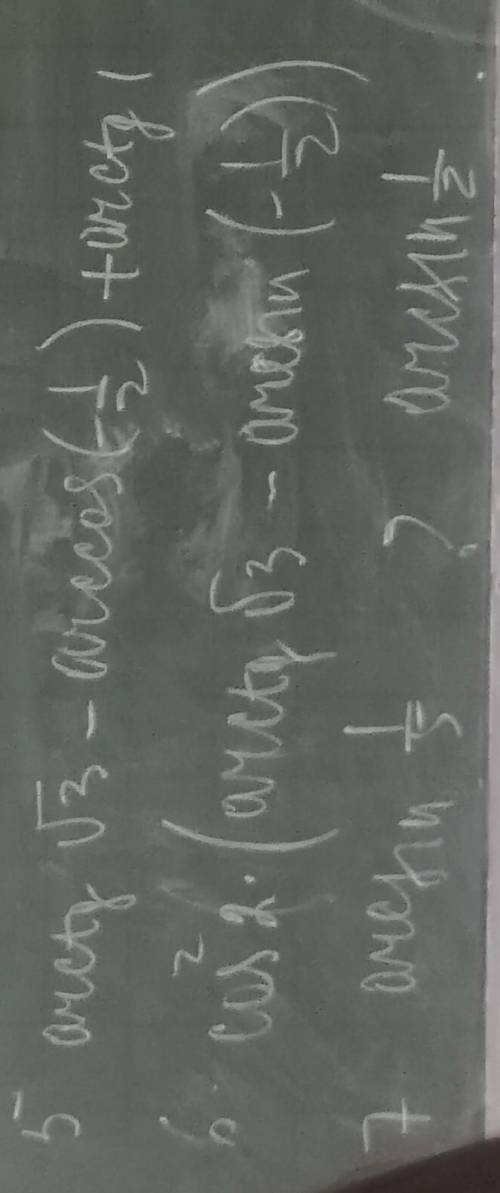 5 arctg √3 - arccos(-1/2) + arctg 1
6. cos² 2·(arctg √3 - arcsin(-1/2))
7 arcsin 1/3 ? arcsin 1/2